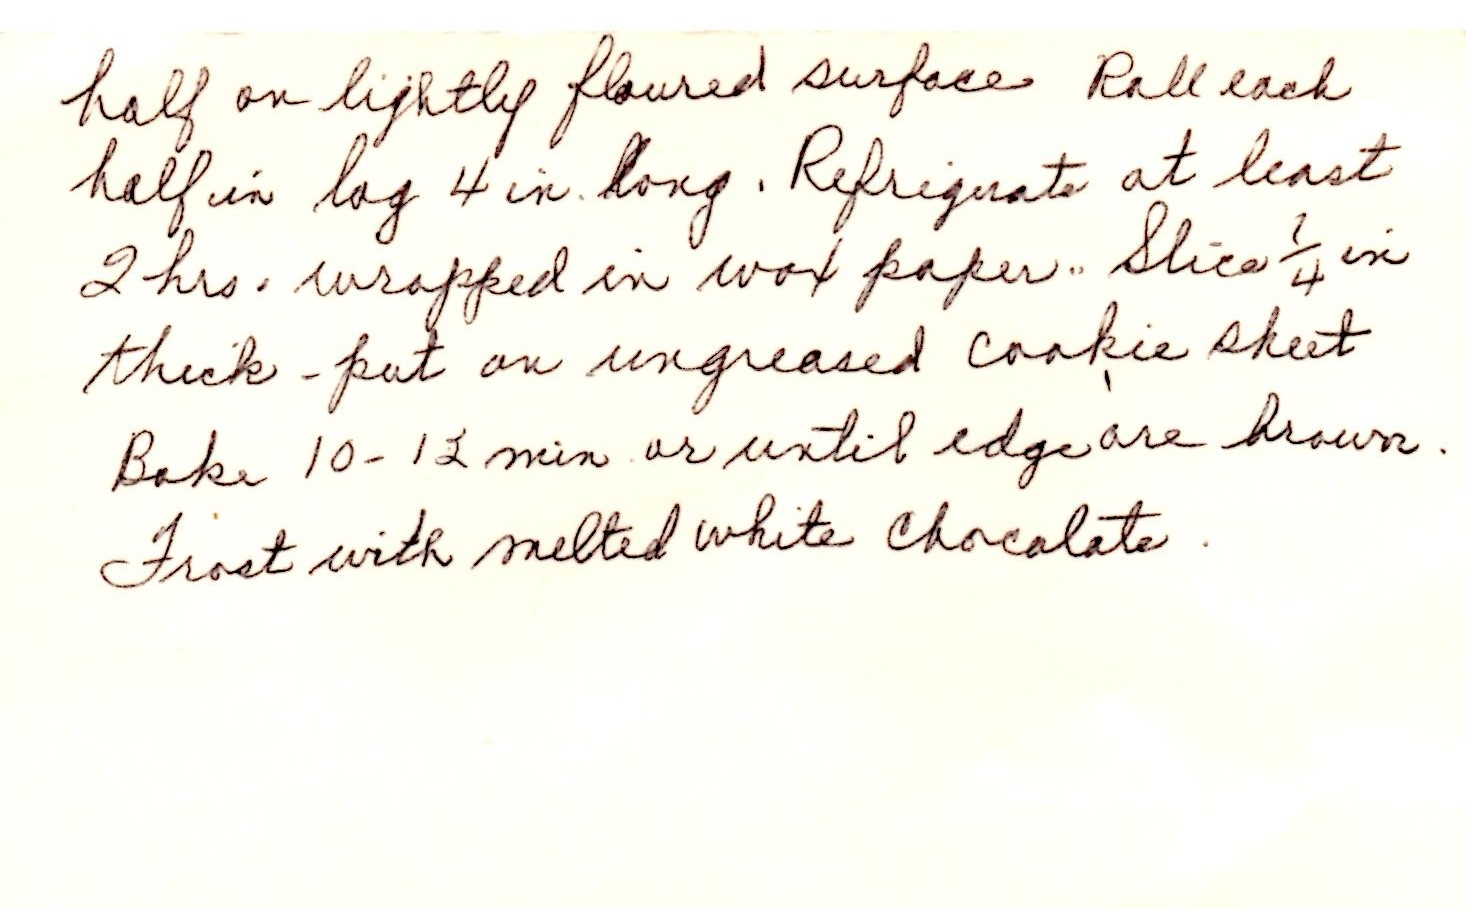 half on lightly floured surface Roll each
half in log 4 in. long. Refrigerate at least
2 hrs. wrapped in wax paper.. Slice 1/4 in
thick - put on ungreased cookie sheet
Bake 10-12 min or until edge are brown.
Frost with melted white chocolate.